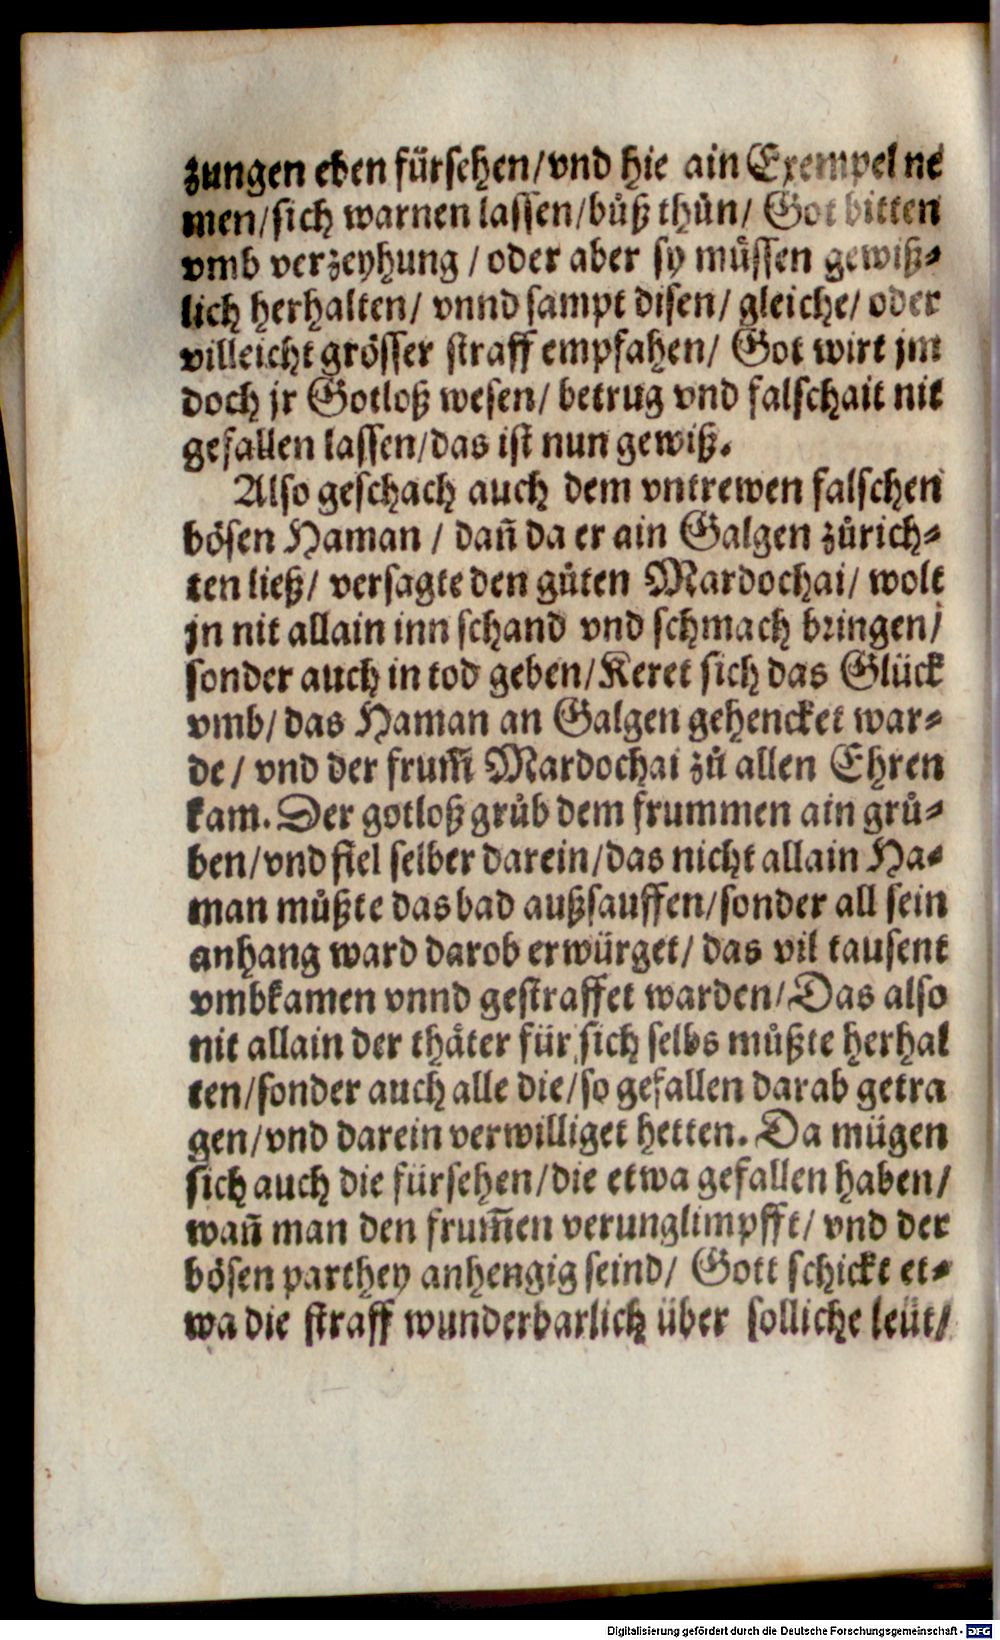 zungen eben fürsehen/vnd hie ain Exempel ne
men/sich warnen lassen/bůß thůn/ Got bitten
vmb verzeyhung / oder aber sy müssen gewiß⸗
lich herhalten/ vnnd sampt disen/ gleiche/ oder
villeicht grösser straff empfahen/ Got wirt jm
doch jr Gotloß wesen/ betrug vnd falschait nit
gefallen lassen/das ist nun gewiß.
Also geschach auch dem vntrewen falschen
bösen Haman / dañ da er ain Galgen zůrich⸗
ten ließ/ versagte den gůten Mardochai/ wolt
jn nit allain inn schand vnd schmach bringen/
sonder auch in tod geben/Keret sich das Glück
vmb/ das Haman an Galgen gehencket war⸗
de / vnd der frum̃ Mardochai zů allen Ehren
kam. Der gotloß grůb dem frummen ain grů⸗
ben/vnd fiel selber darein/das nicht allain Ha⸗
man můßte das bad außsauffen/sonder all sein
anhang ward darob erwürget/ das vil tausent
vmbkamen vnnd gestraffet warden/Das also
nit allain der thäter für sich selbs můßte herhal
ten/sonder auch alle die/so gefallen darab getra
gen/vnd darein verwilliget hetten. Da mügen
sich auch die fürsehen/die etwa gefallen haben/
wañ man den frum̃en verunglimpfft/ vnd der
bösen parthey anhengig seind/ Gott schickt et⸗
wa die straff wunderbarlich über solliche leüt/
Digitalisierung gefördert durch die Deutsche Forschungsgemeinschaft - DFG